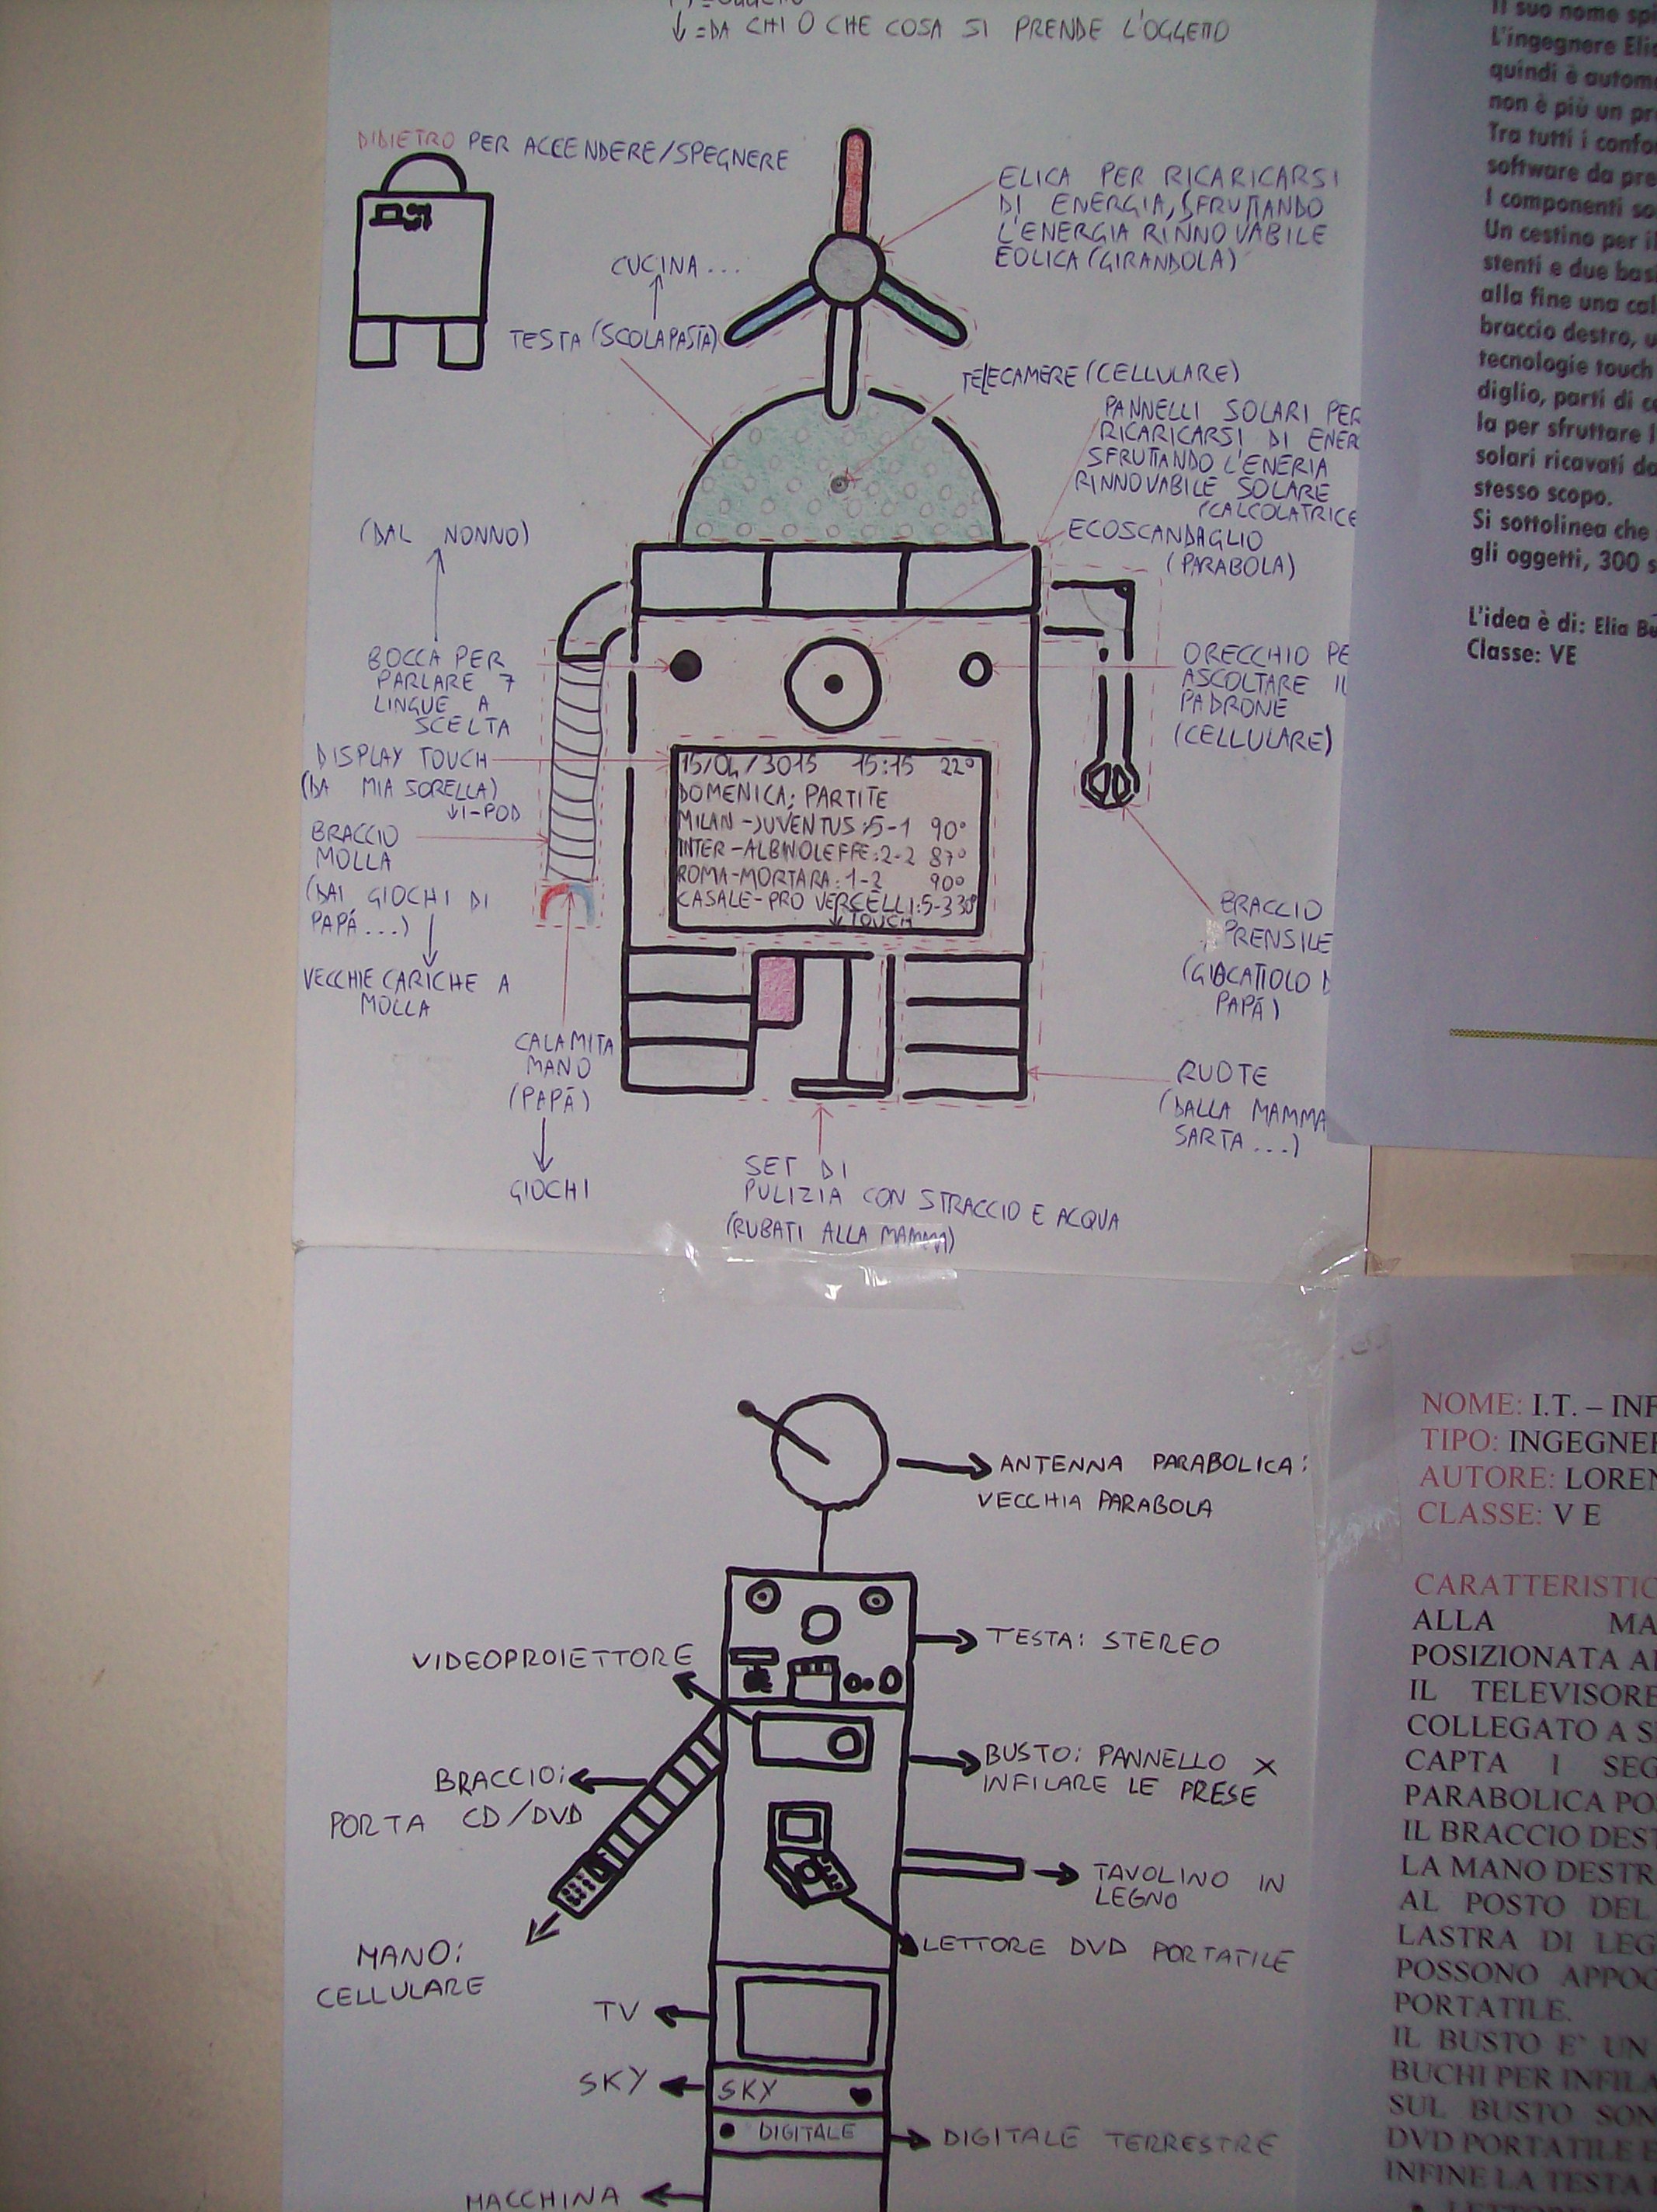 ↓=DA CHI O CHE COSA SI PRENDE L'OGGETTO
DIDIETRO PER ACCENDERE/SPEGNERE
ELICA PER RICARICARSI
DI ENERGIA, SFRUTTANDO
L'ENERGIA RINNOVABILE
EOLICA (GIRANDOLA)
CUCINA...
TESTA (SCOLAPASTA)
TELECAMERE (CELLULARE)
PANNELLI SOLARI PER
RICARICARSI DI ENER
SFRUTTANDO L'ENERIA
RINNOVABILE SOLARE
(CALCOLATRICE
ECOSCANDAGLIO
(PARABOLA)
(DAL NONNO)
BOCCA PER
PARLARE 7
LINGUE A
SCELTA
ORECCHIO PE
ASCOLTARE IL
PADRONE
(CELLULARE)
DISPLAY TOUCH
(DA MIA SORELLA)
↓I-POD
15/04/3015 15:15 22°
DOMENICA: PARTITE
MILAN-JUVENTUS:5-1 90°
INTER-ALBINOLEFFE:2-2 87°
ROMA-MORTARA:1-2 90°
CASALE-PRO VERCELLI:5-3 38°
↓TOUCH
BRACCIO
MOLLA
(DAI GIOCHI DI
PAPÁ...)
VECCHIE CARICHE A
MOLLA
BRACCIO
PRENSILE
(GIOCATTOLO D
PAPÁ)
CALAMITA
MANO
(PAPÁ)
GIOCHI
RUOTE
(DALLA MAMMA
SARTA...)
SET DI
PULIZIA CON STRACCIO E ACQUA
(RUBATI ALLA MAMMA)
Il suo nome spi
L'ingegnere Elia
quindi è autom
non è più un pr
Tra tutti i confo
software da pre
I componenti so
Un cestino per il
stenti e due basi
alla fine una cal
braccio destro, u
tecnologie touch
diglio, parti di c
la per sfruttare l
solari ricavati da
stesso scopo.
Si sottolinea che
gli oggetti, 300 s
L'idea è di: Elia Be
Classe: VE
ANTENNA PARABOLICA:
VECCHIA PARABOLA
TESTA: STEREO
VIDEOPROIETTORE
BUSTO: PANNELLO X
INFILARE LE PRESE
BRACCIO:
PORTA CD/DVD
TAVOLINO IN
LEGNO
LETTORE DVD PORTATILE
MANO:
CELLULARE
TV
SKY
SKY
DIGITALE
DIGITALE TERRESTRE
MACCHINA
NOME: I.T. – INF
TIPO: INGEGNER
AUTORE: LOREN
CLASSE: V E
CARATTERISTIC
ALLA MA
POSIZIONATA A
IL TELEVISORE
COLLEGATO A S
CAPTA I SEG
PARABOLICA PO
IL BRACCIO DEST
LA MANO DESTR
AL POSTO DEL
LASTRA DI LEG
POSSONO APPOG
PORTATILE.
IL BUSTO E' UN
BUCHI PER INFILA
SUL BUSTO SON
DVD PORTATILE E
INFINE LA TESTA